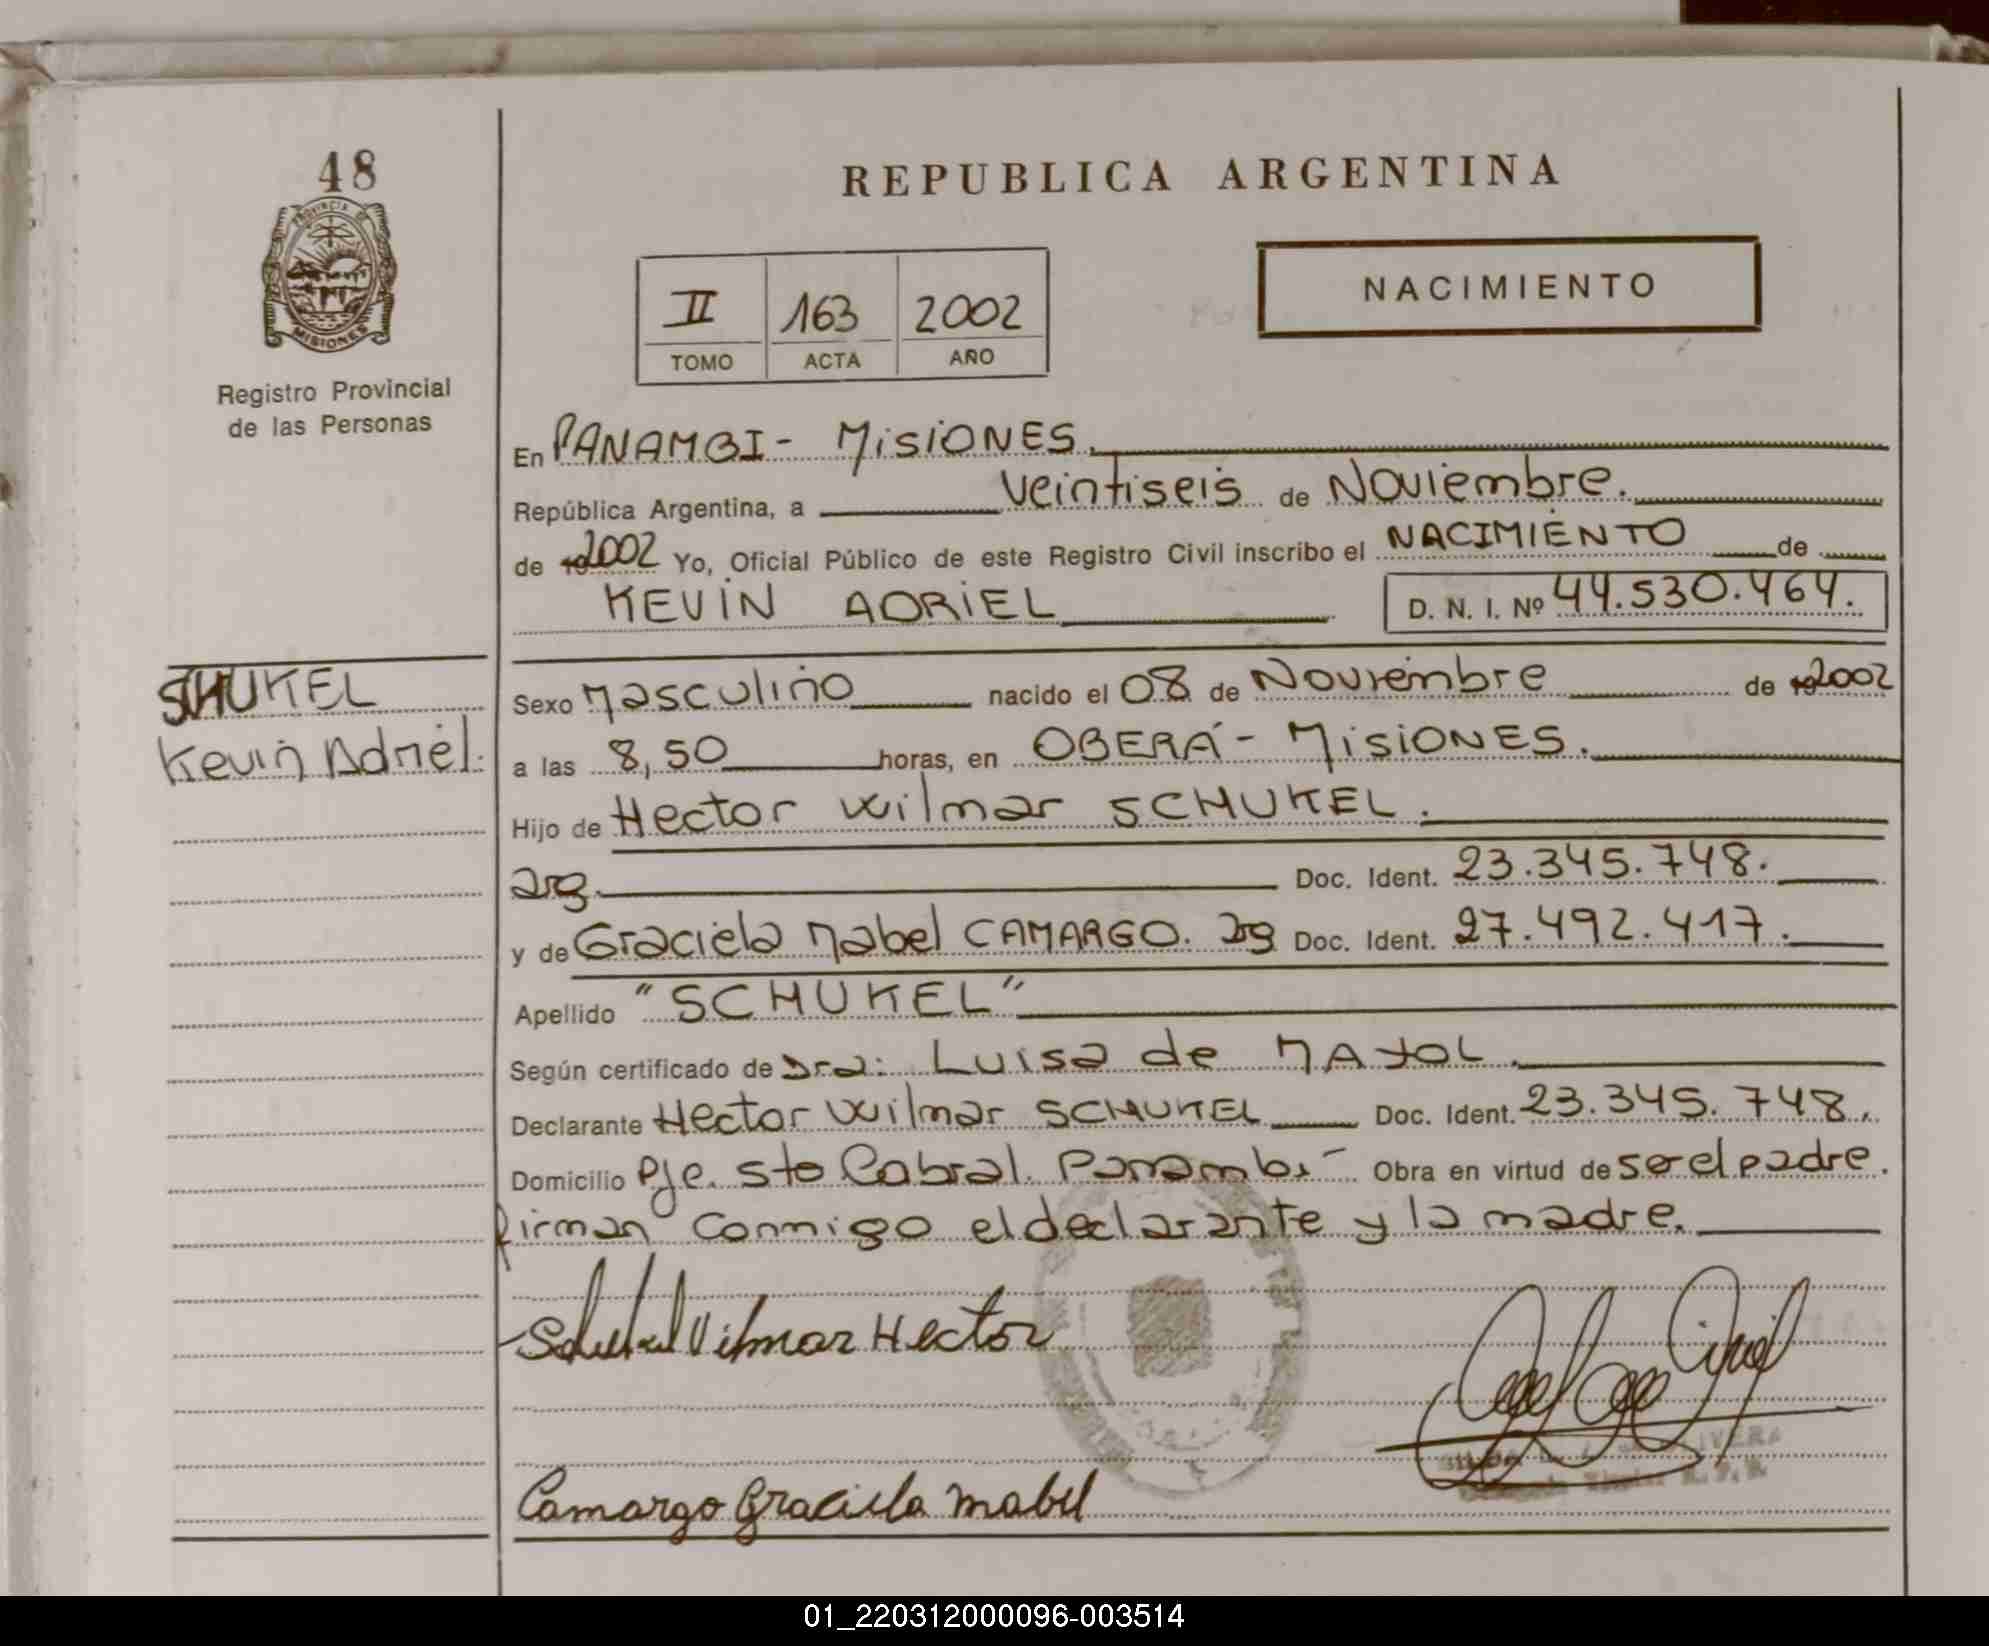 48
REPUBLICA ARGENTINA
PROVINCIA DE
MISIONES
Registro Provincial
de las Personas
II 163 2002
TOMO ACTA AÑO
NACIMIENTO
En PANAMBI - MISIONES.
República Argentina, a veintiseis de Noviembre.
de 192002 Yo, Oficial Público de este Registro Civil inscribo el NACIMIENTO de
KEVIN ADRIEL D. N. I. Nº 44.530.464.
SCHUKEL
Kevin Adriel.
Sexo Masculino nacido el 08 de Noviembre de 192002
a las 8,50 horas, en OBERÁ - MISIONES.
Hijo de Hector Wilmar SCHUKEL.
arg. Doc. Ident. 23.345.748.
y de Graciela Mabel CAMARGO. arg Doc. Ident. 27.492.417.
Apellido "SCHUKEL"
Según certificado de Dra: Luisa de MAYOL.
Declarante Hector Wilmar SCHUKEL Doc. Ident. 23.345.748.
Domicilio Pje. Sto Cabral. Panambi - Obra en virtud de ser el padre.
firman conmigo el declarante y la madre.
Schukel Vilmar Hector
OLIVERA
Camargo Graciela Mabel
01_220312000096-003514